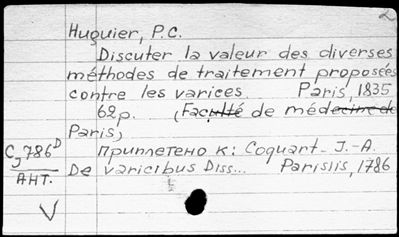 2
Huguier, P.C.
Discuter la valeur des diverses
méthodes de traitement proposées
contre les varices Paris, 1835
62p. (Faculté de médecine de
Paris)
Cj 786ᴰ
АНТ.
Приплетено к: Coquart. J.-A.
De varicibus Diss... Parisiis, 1786
V